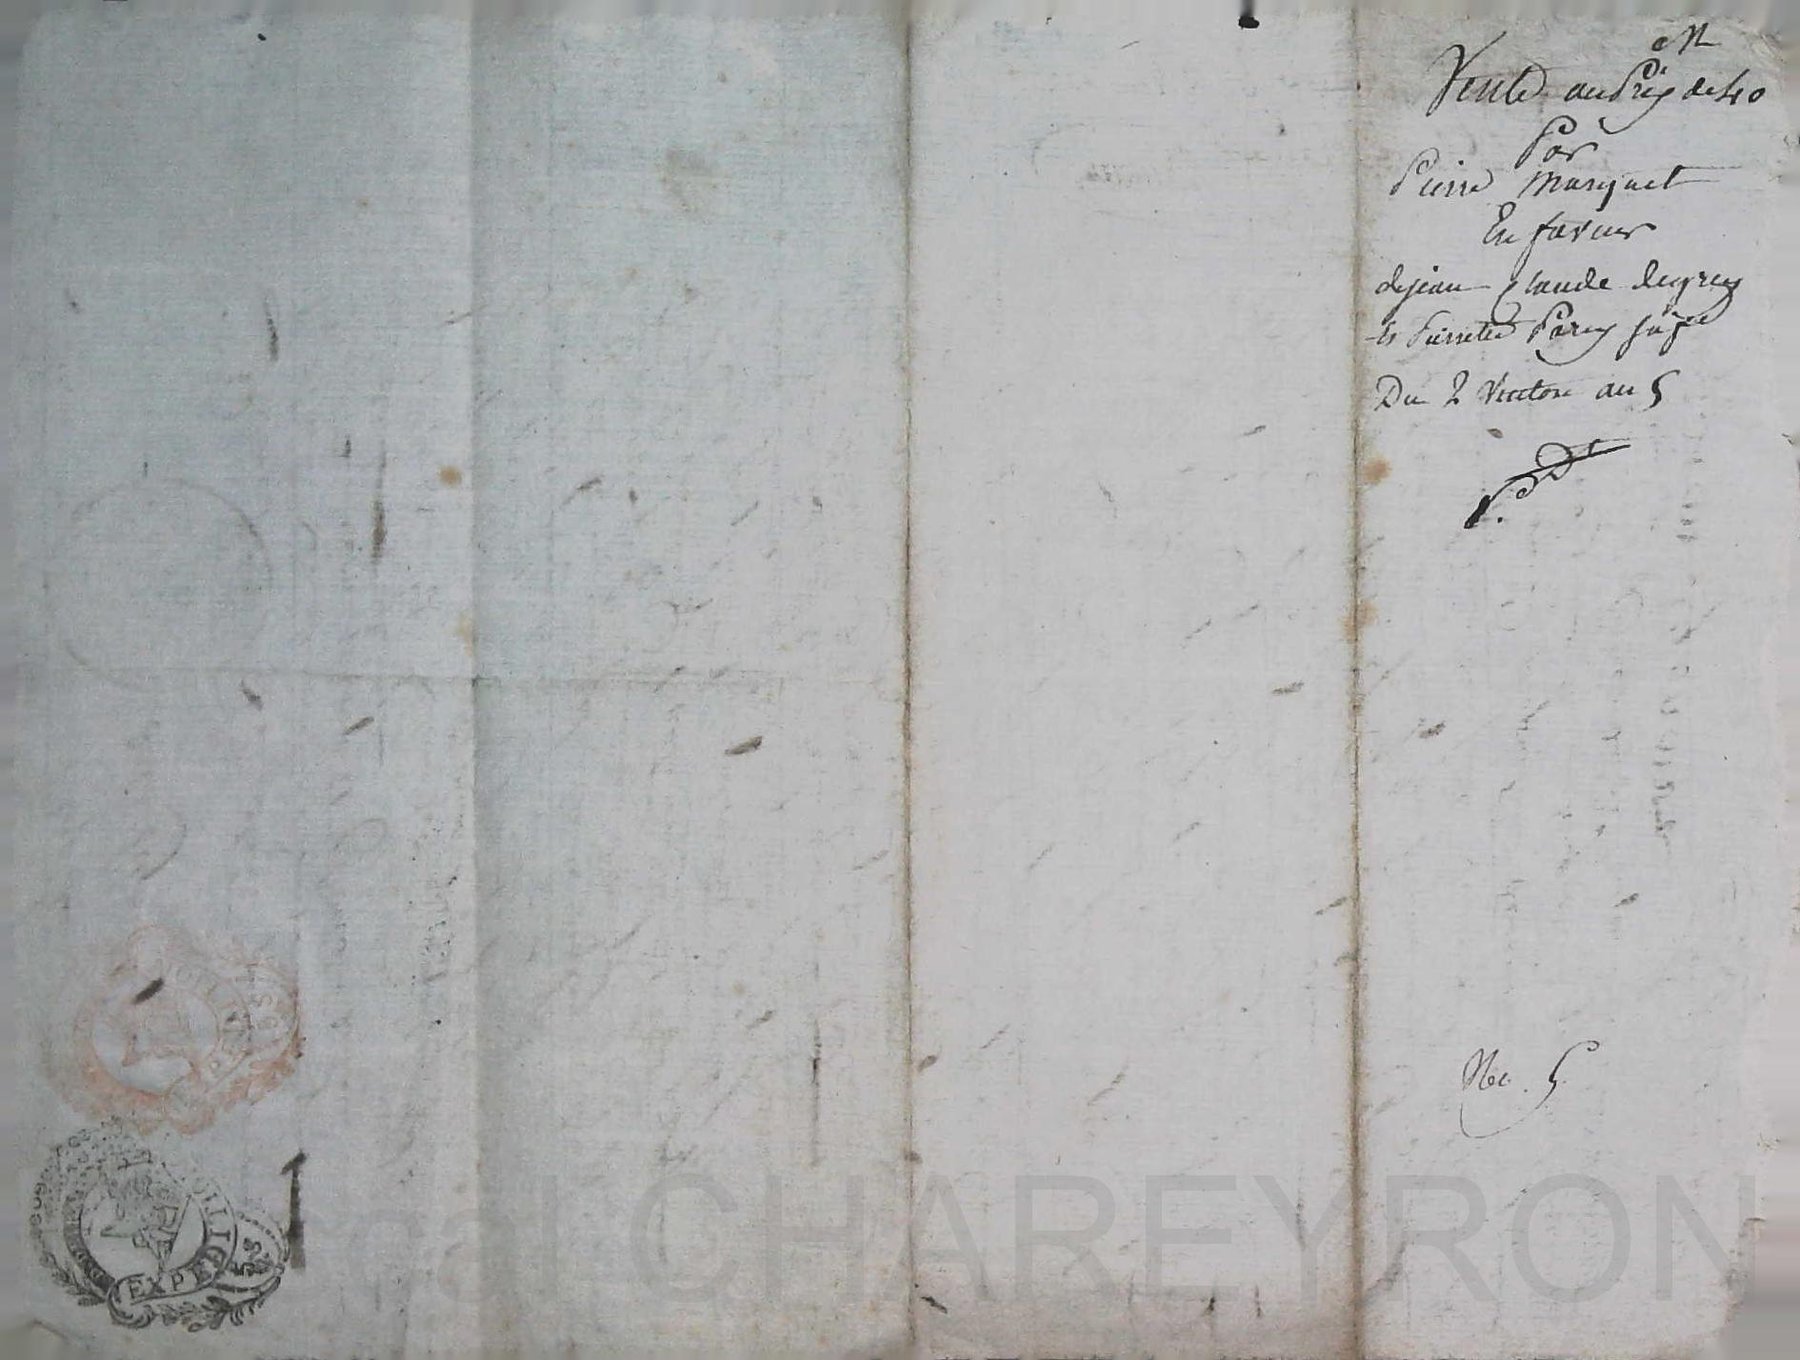 Vente au Prix de 40
Par
Pierre Marquet
En faveur
de jean Claude
et Pierrette sa fe
Du 2 Ventose an 5
Nec. 5
EXPED
CHAREYRON